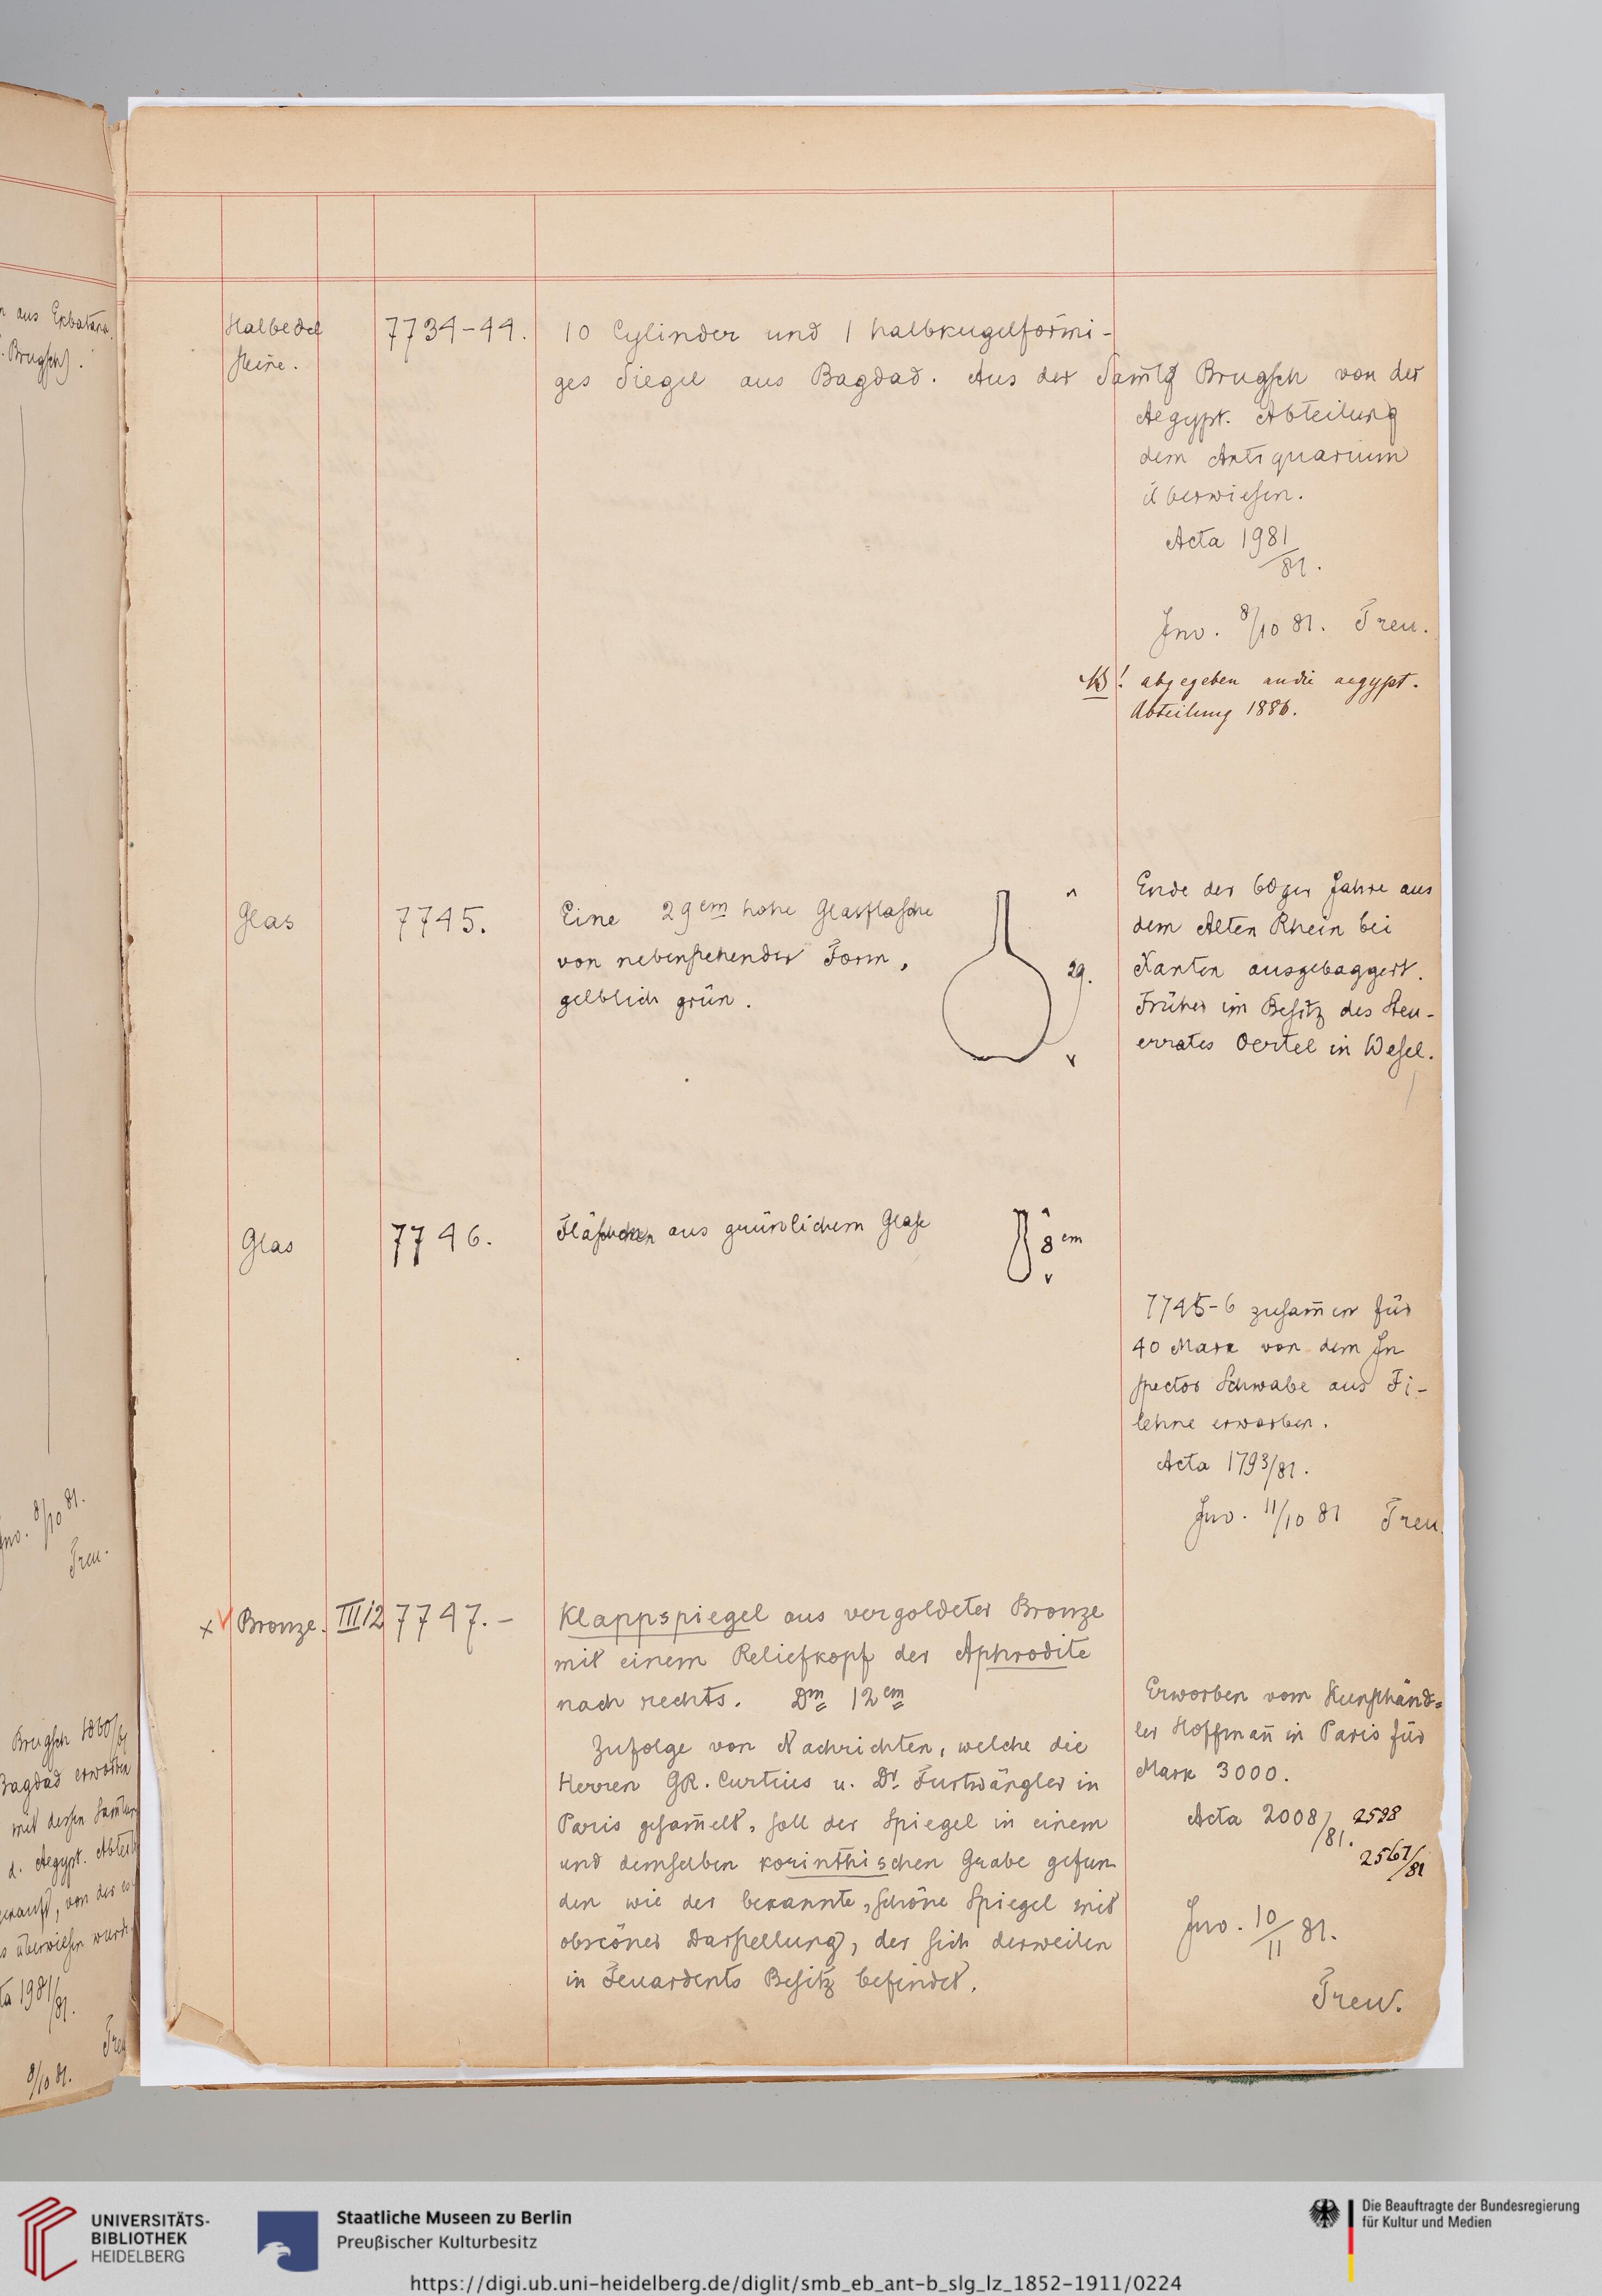 n aus Ekbatana
. Brugsch) .
Inv. 8/10 81.
Treu.
Brugsch 1860/61
Bagdad erworben
mit dessen Samlung
d. Aegypt. Abteil
gekauft, von der es
s überwiesen wurde
ta 1981/81.
Treu
8/10 81.
Halbedel
steine.
7734-44.
10 Cylinder und 1 halbkugelförmi-
ges Siegel aus Bagdad. Aus der Samlg Brugsch von der
Aegypt. Abteilung
dem Antiquarium
überwiesen.
Acta 1981/81.
Inv. 8/10 81. Treu.
NB! abgegeben an die aegypt.
Abteilung 1886.
Glas
7745.
Eine 29 cm hohe Glasflasche
von nebenstehender Form,
gelblich grün.
29.
Ende der 60ger Jahre aus
dem Alten Rhein bei
Xanten ausgebaggert.
Früher im Besitz des Steu-
errates Oertel in Wesel.
Glas
7746.
Fläschchen aus grünlichem Glase
8 cm
7745-6 zusam̄en für
40 Mark von dem In
spector Schwabe aus Fi-
lehne erworben.
Acta 1793/81.
Inv. 11/10 81 Treu.
x V Bronze. III i2 7747. -
Klappspiegel aus vergoldeter Bronze
mit einem Reliefkopf der Aphrodite
nach rechts. Dm 12 cm
Zufolge von Nachrichten, welche die
Herren GR. Curtius u. Dr. Furtwängler in
Paris gesam̄elt, soll der Spiegel in einem
und demselben korinthischen Grabe gefun
den wie der bekannte, schöne Spiegel mit
obscöner Darstellung, der sich derweilen
in Feuardents Besitz befindet.
Erworben vom Kunsthänd=
ler Hoffman̄ in Paris für
Mark 3000.
Acta 2008/81. 2598
2567/81
Inv. 10/11 81.
Treu.
UNIVERSITÄTS-
BIBLIOTHEK
HEIDELBERG
Staatliche Museen zu Berlin
Preußischer Kulturbesitz
Die Beauftragte der Bundesregierung
für Kultur und Medien
https://digi.ub.uni-heidelberg.de/diglit/smb_eb_ant-b_slg_lz_1852-1911/0224